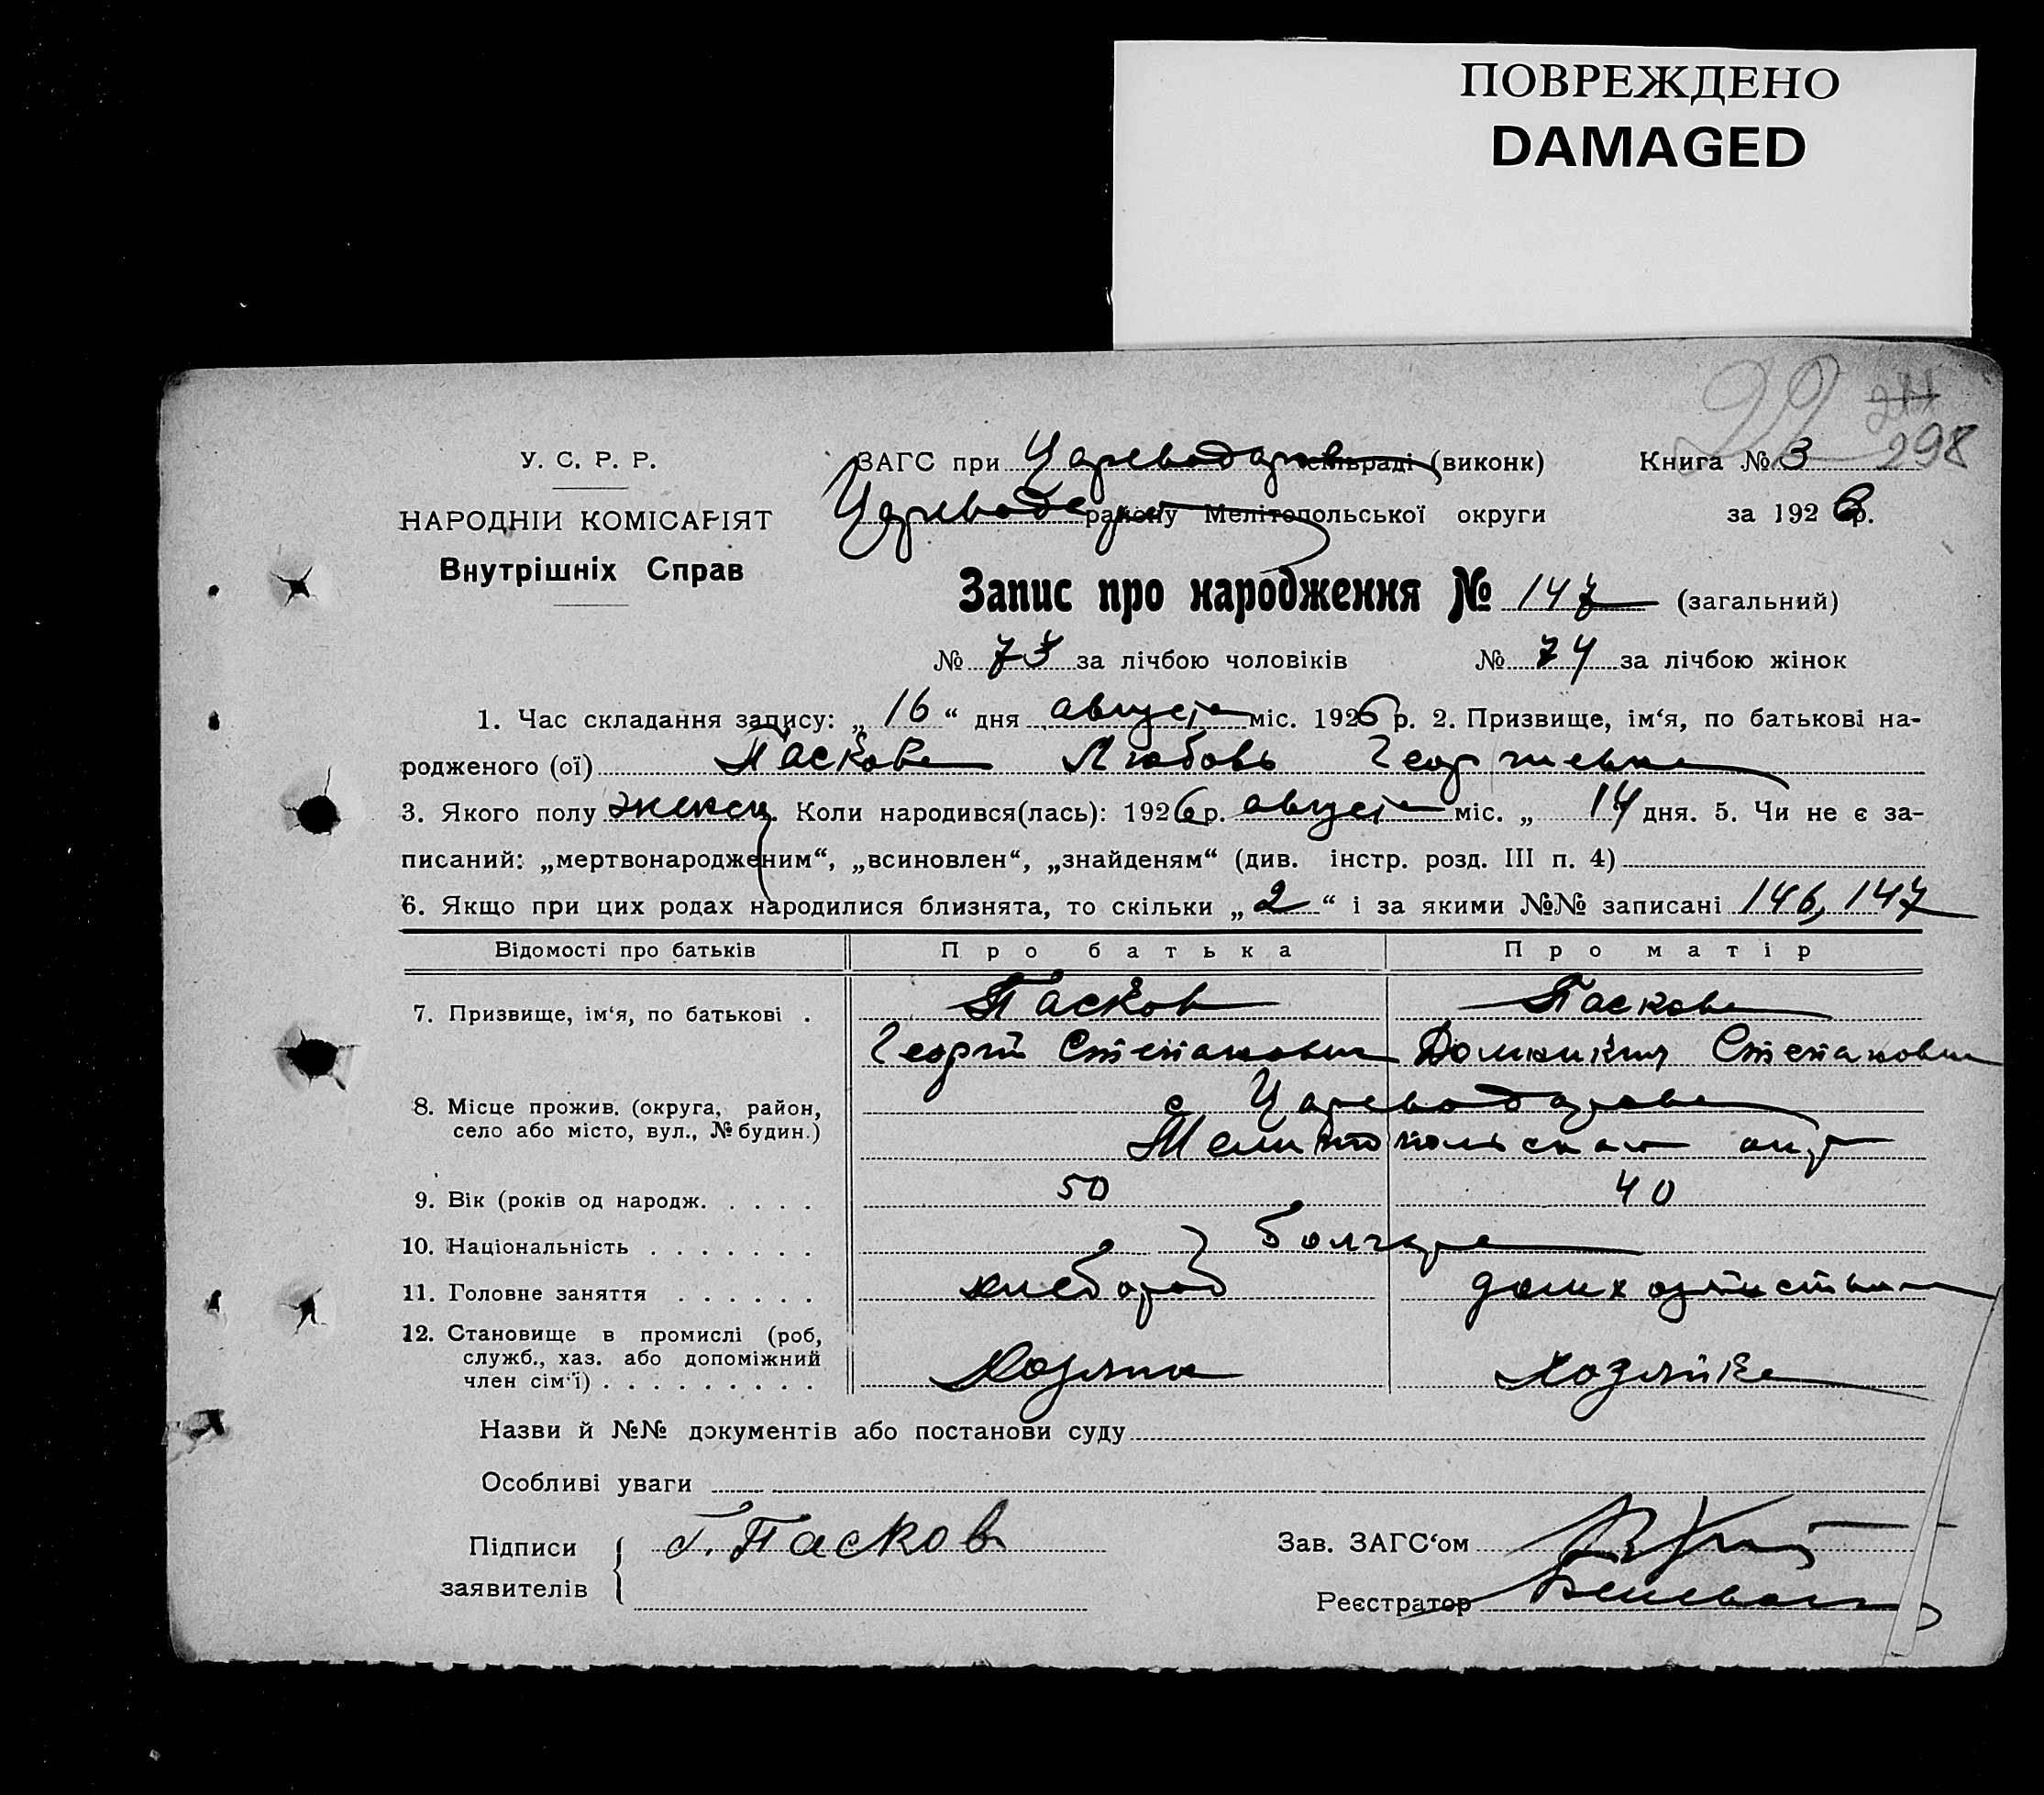 ПОВРЕЖДЕНО
DAMAGED
22 211
298
У. С. Р. Р.
НАРОДНІИ КОМІСАРІЯТ
Внутрішніх Справ
ЗАГС при Цареводаров сільраді (виконк) Книга № 3
Цареводар району Мелітопольської округи за 1926 р.
Запис про народження № 147 (загальний)
№ 73 за лічбою чоловіків № 74 за лічбою жінок
1. Час складання запису: „ 16 “ дня августа міс. 1926 р. 2. Призвище, ім‘я, по батькові на-
родженого (ої) Паскова Любовь Георгиевна
3. Якого полу женск. Коли народився(лась): 1926 р. августа міс. „ 14 дня. 5. Чи не є за-
писаний: „мертвонародженим“, „всиновлен“, „знайденям“ (див. інстр. розд. III п. 4)
6. Якщо при цих родах народилися близнята, то скільки „ 2 “ і за якими №№ записані 146, 147
Відомості про батьків Про батька Про матір
7. Призвище, ім‘я, по батькові . Пасков Паскова
Георгій Степанович Домникия Степановн
8. Місце прожив. (округа, район, с Цареводаровка
село або місто, вул., № будин.) Мелитопольской окр
9. Вік (років од народж. . . . . 50 40
10. Національність . . . . . . . Болгаре
11. Головне заняття . . . . . . хлебороб домхозяйствн
12. Становище в промислі (роб,
служб., хаз. або допоміжний
член сім‘ї) . . . . . . . . . Хозяин Хозяйка
Назви й №№ документів або постанови суду
Особливі уваги
Підписи Г. Пасков Зав. ЗАГС‘ом
заявителів Реєстратор